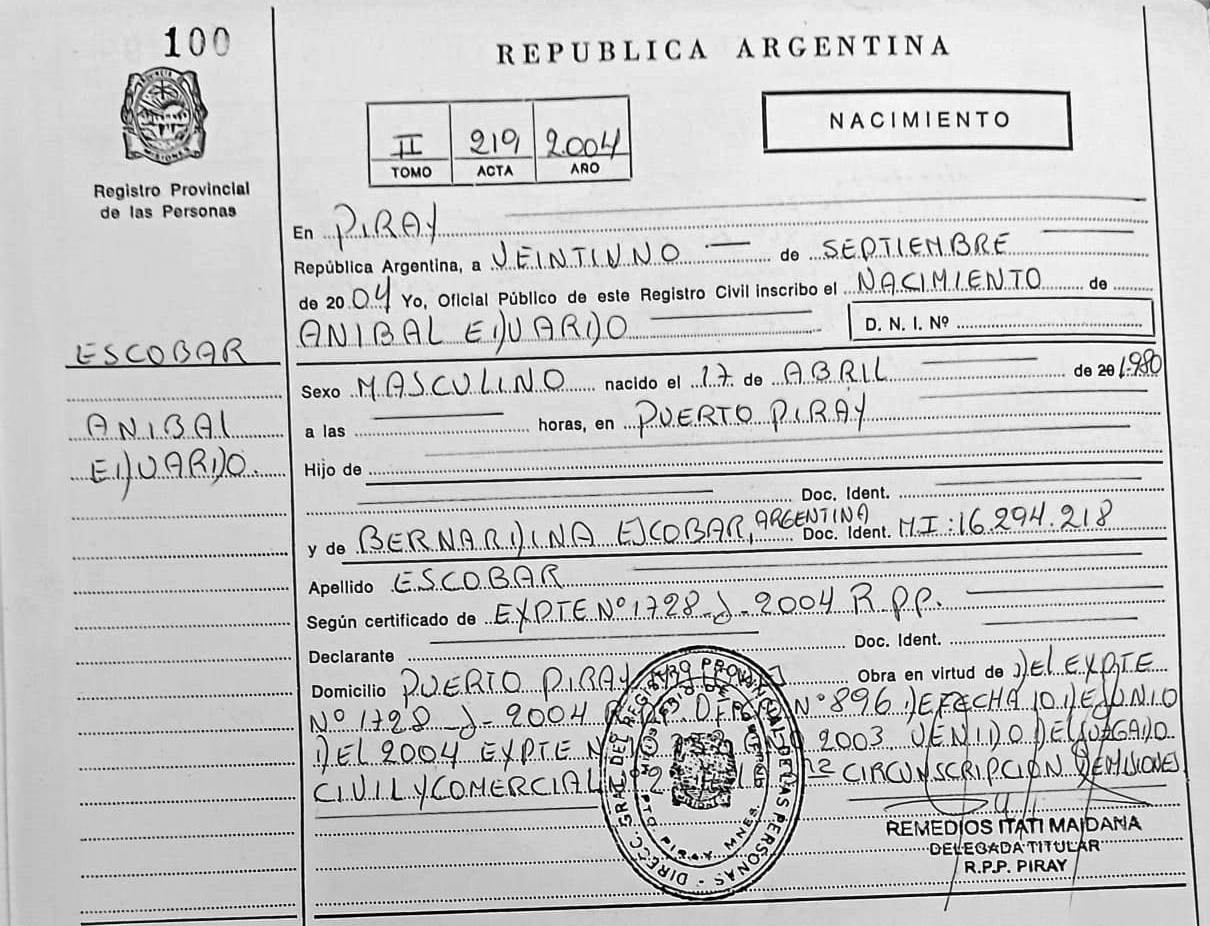 100
REPUBLICA ARGENTINA
NACIMIENTO
II 219 2.004
TOMO ACTA AÑO
Registro Provincial
de las Personas
En PIRAY
República Argentina, a VEINTIUNO de SEPTIEMBRE
de 20 04 Yo, Oficial Público de este Registro Civil inscribo el NACIMIENTO de
ANIBAL EDUARDO
D. N. I. Nº
ESCOBAR
ANIBAL
EDUARDO.
Sexo MASCULINO nacido el 17 de ABRIL de 20 1.980
a las horas, en PUERTO PIRAY
Hijo de
Doc. Ident.
y de BERNARDINA ESCOBAR, ARGENTINA Doc. Ident. M.I: 16.294.218
Apellido ESCOBAR
Según certificado de EXPTE Nº 1728-J-2004 R.P.P.
Declarante Doc. Ident.
Domicilio PUERTO PIRAY Obra en virtud de DEL EXPTE
Nº 1728-J-2004 Nº 896 DE FECHA 10 DE JUNIO
DEL 2004 EXPTE 2003 VENIDO DE JUZGADO
CIVIL Y COMERCIAL CIRCUNSCRIPCIÓN DE MISIONES
DIRECC. GRAL DEL REGISTRO PROVINCIAL DE LAS PERSONAS
PTO PIRAY MNES.
REMEDIOS ITATI MAIDANA
DELEGADA TITULAR
R.P.P. PIRAY